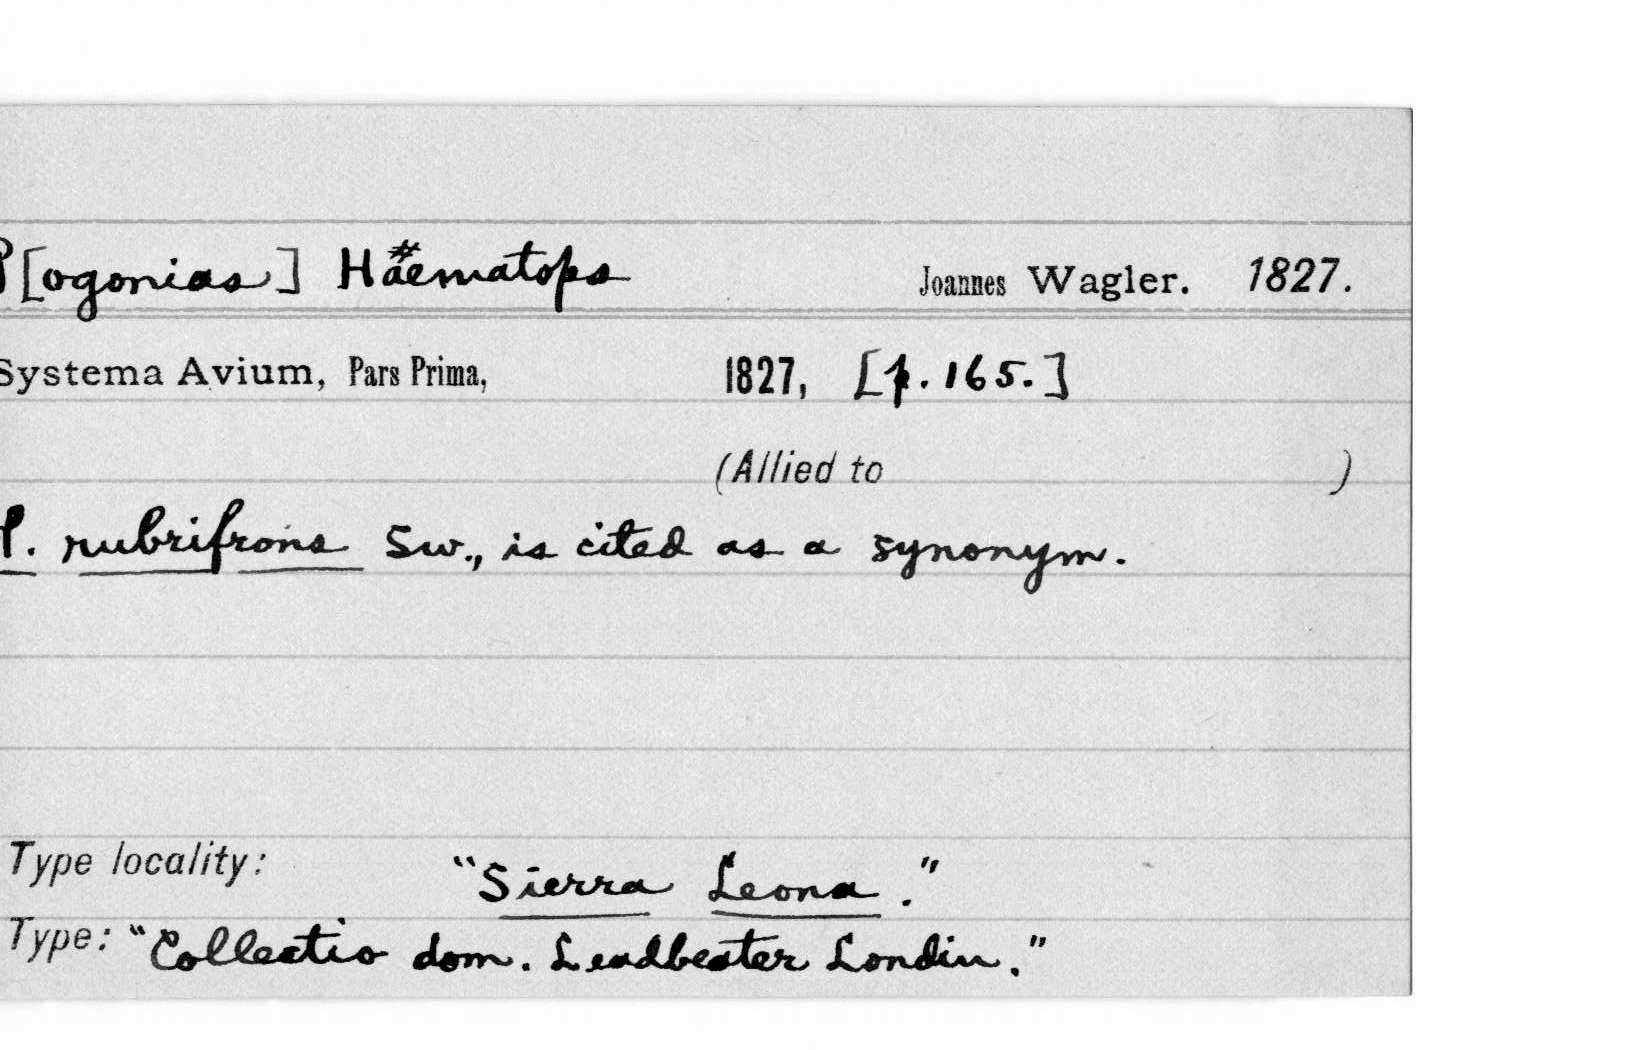 P[ogonias] Haematops Joannes Wagler. 1827.
Systema Avium, Pars Prima, 1827, [p. 165.]
(Allied to )
P. rubrifrons Sw., is cited as a synonym.
Type locality: "Sierra Leona."
Type: "Collectio dom. Leadbeater Londin."